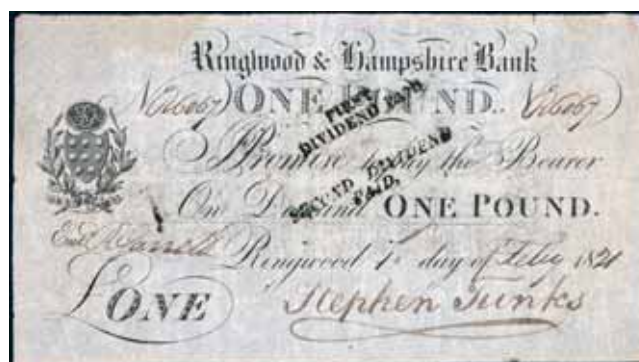 Ringwood & Hampshire Bank
ONE POUND..
FIRST
DIVIDEND PAID
I Promise to pay the Bearer
SECOND DIVIDEND
PAID.
On Demand ONE POUND.
Ringwood 1st day of Feby 1821
£ONE
Stephen Tunks